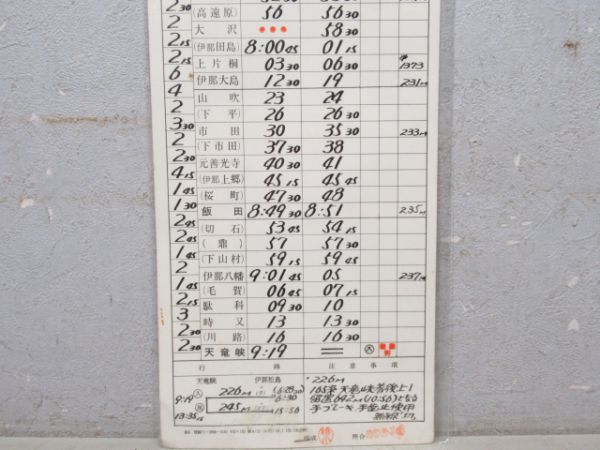 2 30 (高遠原) 56 56 30
2 大沢 ••• 58 30
2 15 (伊那田島) 8:00 45 01 15
2 15 上片桐 03 30 06 30 1373
6 伊那大島 12 30 19 231M
4 山吹 23 24
2 (下平) 26 26 30
3 30 市田 30 35 30 233M
2 (下市田) 37 30 38
2 30 元善光寺 40 30 41
4 15 (伊那上郷) 45 15 45 45
1 45 (桜町) 47 30 48
1 30 飯田 8:49 30 8:51 235M
2 45 (切石) 53 45 54 15
2 45 (鼎) 57 57 30
1 45 (下山村) 59 15 59 45
2 伊那八幡 9:01 45 05 237M
1 45 (毛賀) 06 45 07 15
2 15 駄科 09 30 10
3 時又 13 13 30
2 30 (川路) 16 16 30
2 30 天竜峡 9:19 =
行路 注意事項
天竜峡 伊那松島 226M
9:19 226M 6:30
13:35 15 245M 15:56
照合